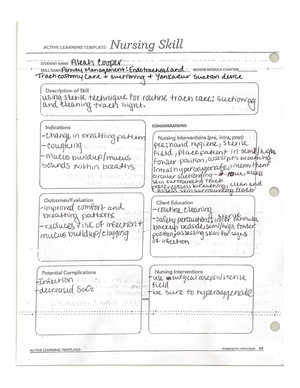 ACTIVE LEARNING TEMPLATE: Nursing Skill
STUDENT NAME Aleah Cooper
SKILL NAME Airway Management: Endotracheal and REVIEW MODULE CHAPTER
Tracheostomy Care + suctioning + Yankauer Suction device
Description of Skill
using sterile technique for routine trach care: suctioning
and cleaning trach sight.
Indications
-change in breathing pattern
- coughing
- mucus buildup/mucus
sounds within breaths
CONSIDERATIONS
Nursing Interventions (pre, intra, post)
pre: hand hygiene, sterile
field, place patient in semi/high
fowler position, assess pt's breathing
intra: hyperoxygenate, intermittent
circular suctioning
skin surround trach
post: reassess breathing, clean and
assess skin surrounding trach
Outcomes/Evaluation
-improved comfort and
breathing patterns
- reduces risk of infection +
mucus buildup/clogging
Client Education
- routine cleaning
- safety precautions:
backup bedside, semi/high fowler
position, assessing skin for signs
of infection
Potential Complications
-Infection
- decreased SaO2
Nursing Interventions
-use surgical asepsis/sterile
field
- be sure to hyperoxygenate
ACTIVE LEARNING TEMPLATES